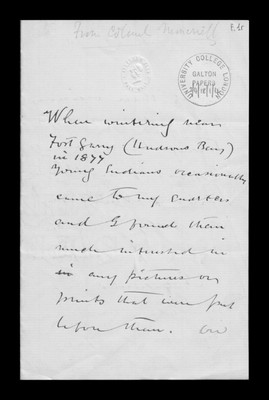 From Colonel Moncrieff
UNIVERSITY COLLEGE LONDON
GALTON
PAPERS
When wintering near
Fort Garry (Hudsons Bay)
in 1877
Young Indians occasionally
came to my quarters
and I found them
much interested in
any pictures or
prints that were put
before them. on